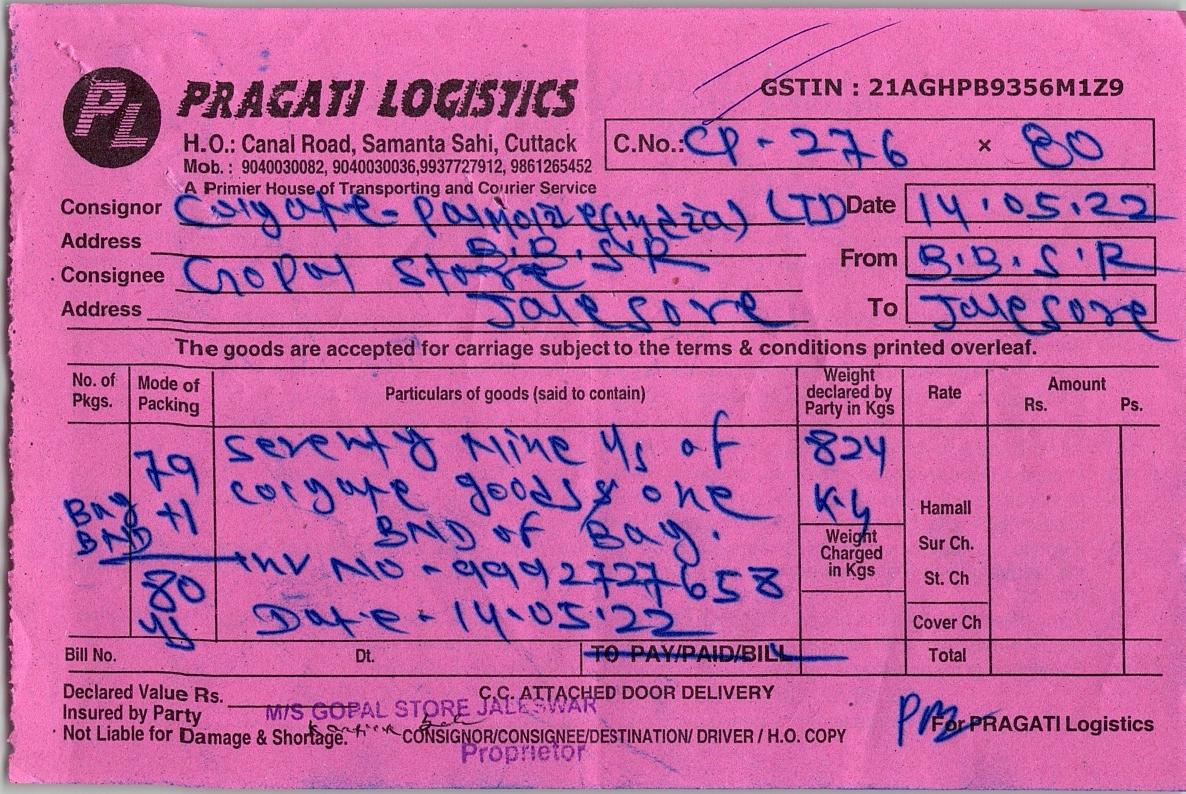 PL
PRAGATI LOGISTICS
GSTIN : 21AGHPB9356M1Z9
H.O.: Canal Road, Samanta Sahi, Cuttack
Mob. : 9040030082, 9040030036,9937727912, 9861265452
A Primier House of Transporting and Courier Service
C.No.: CP - 276 × 80
Consignor Colgate - Palmolive (India) LTD Date 14.05.22
Address B.B.S.R
From B.B.S.R
Consignee Gopal Store
Address Jalesore To Jalesore
The goods are accepted for carriage subject to the terms & conditions printed overleaf.
No. of Pkgs. Mode of Packing Particulars of goods (said to contain) Weight declared by Party in Kgs Rate Amount Rs. Ps.
79 Seventy Nine c/s of 824
Bag +1 colgate goods & one Kg Hamall
BND BND of Bag. Weight Charged in Kgs Sur Ch.
80 Inv No - 9992727658 St. Ch
c/s Date - 14.05.22 Cover Ch
Bill No. Dt. TO PAY/PAID/BILL Total
Declared Value Rs. C.C. ATTACHED DOOR DELIVERY
Insured by Party M/S GOPAL STORE JALESWAR
Not Liable for Damage & Shortage. CONSIGNOR/CONSIGNEE/DESTINATION/ DRIVER / H.O. COPY
For PRAGATI Logistics
Proprietor